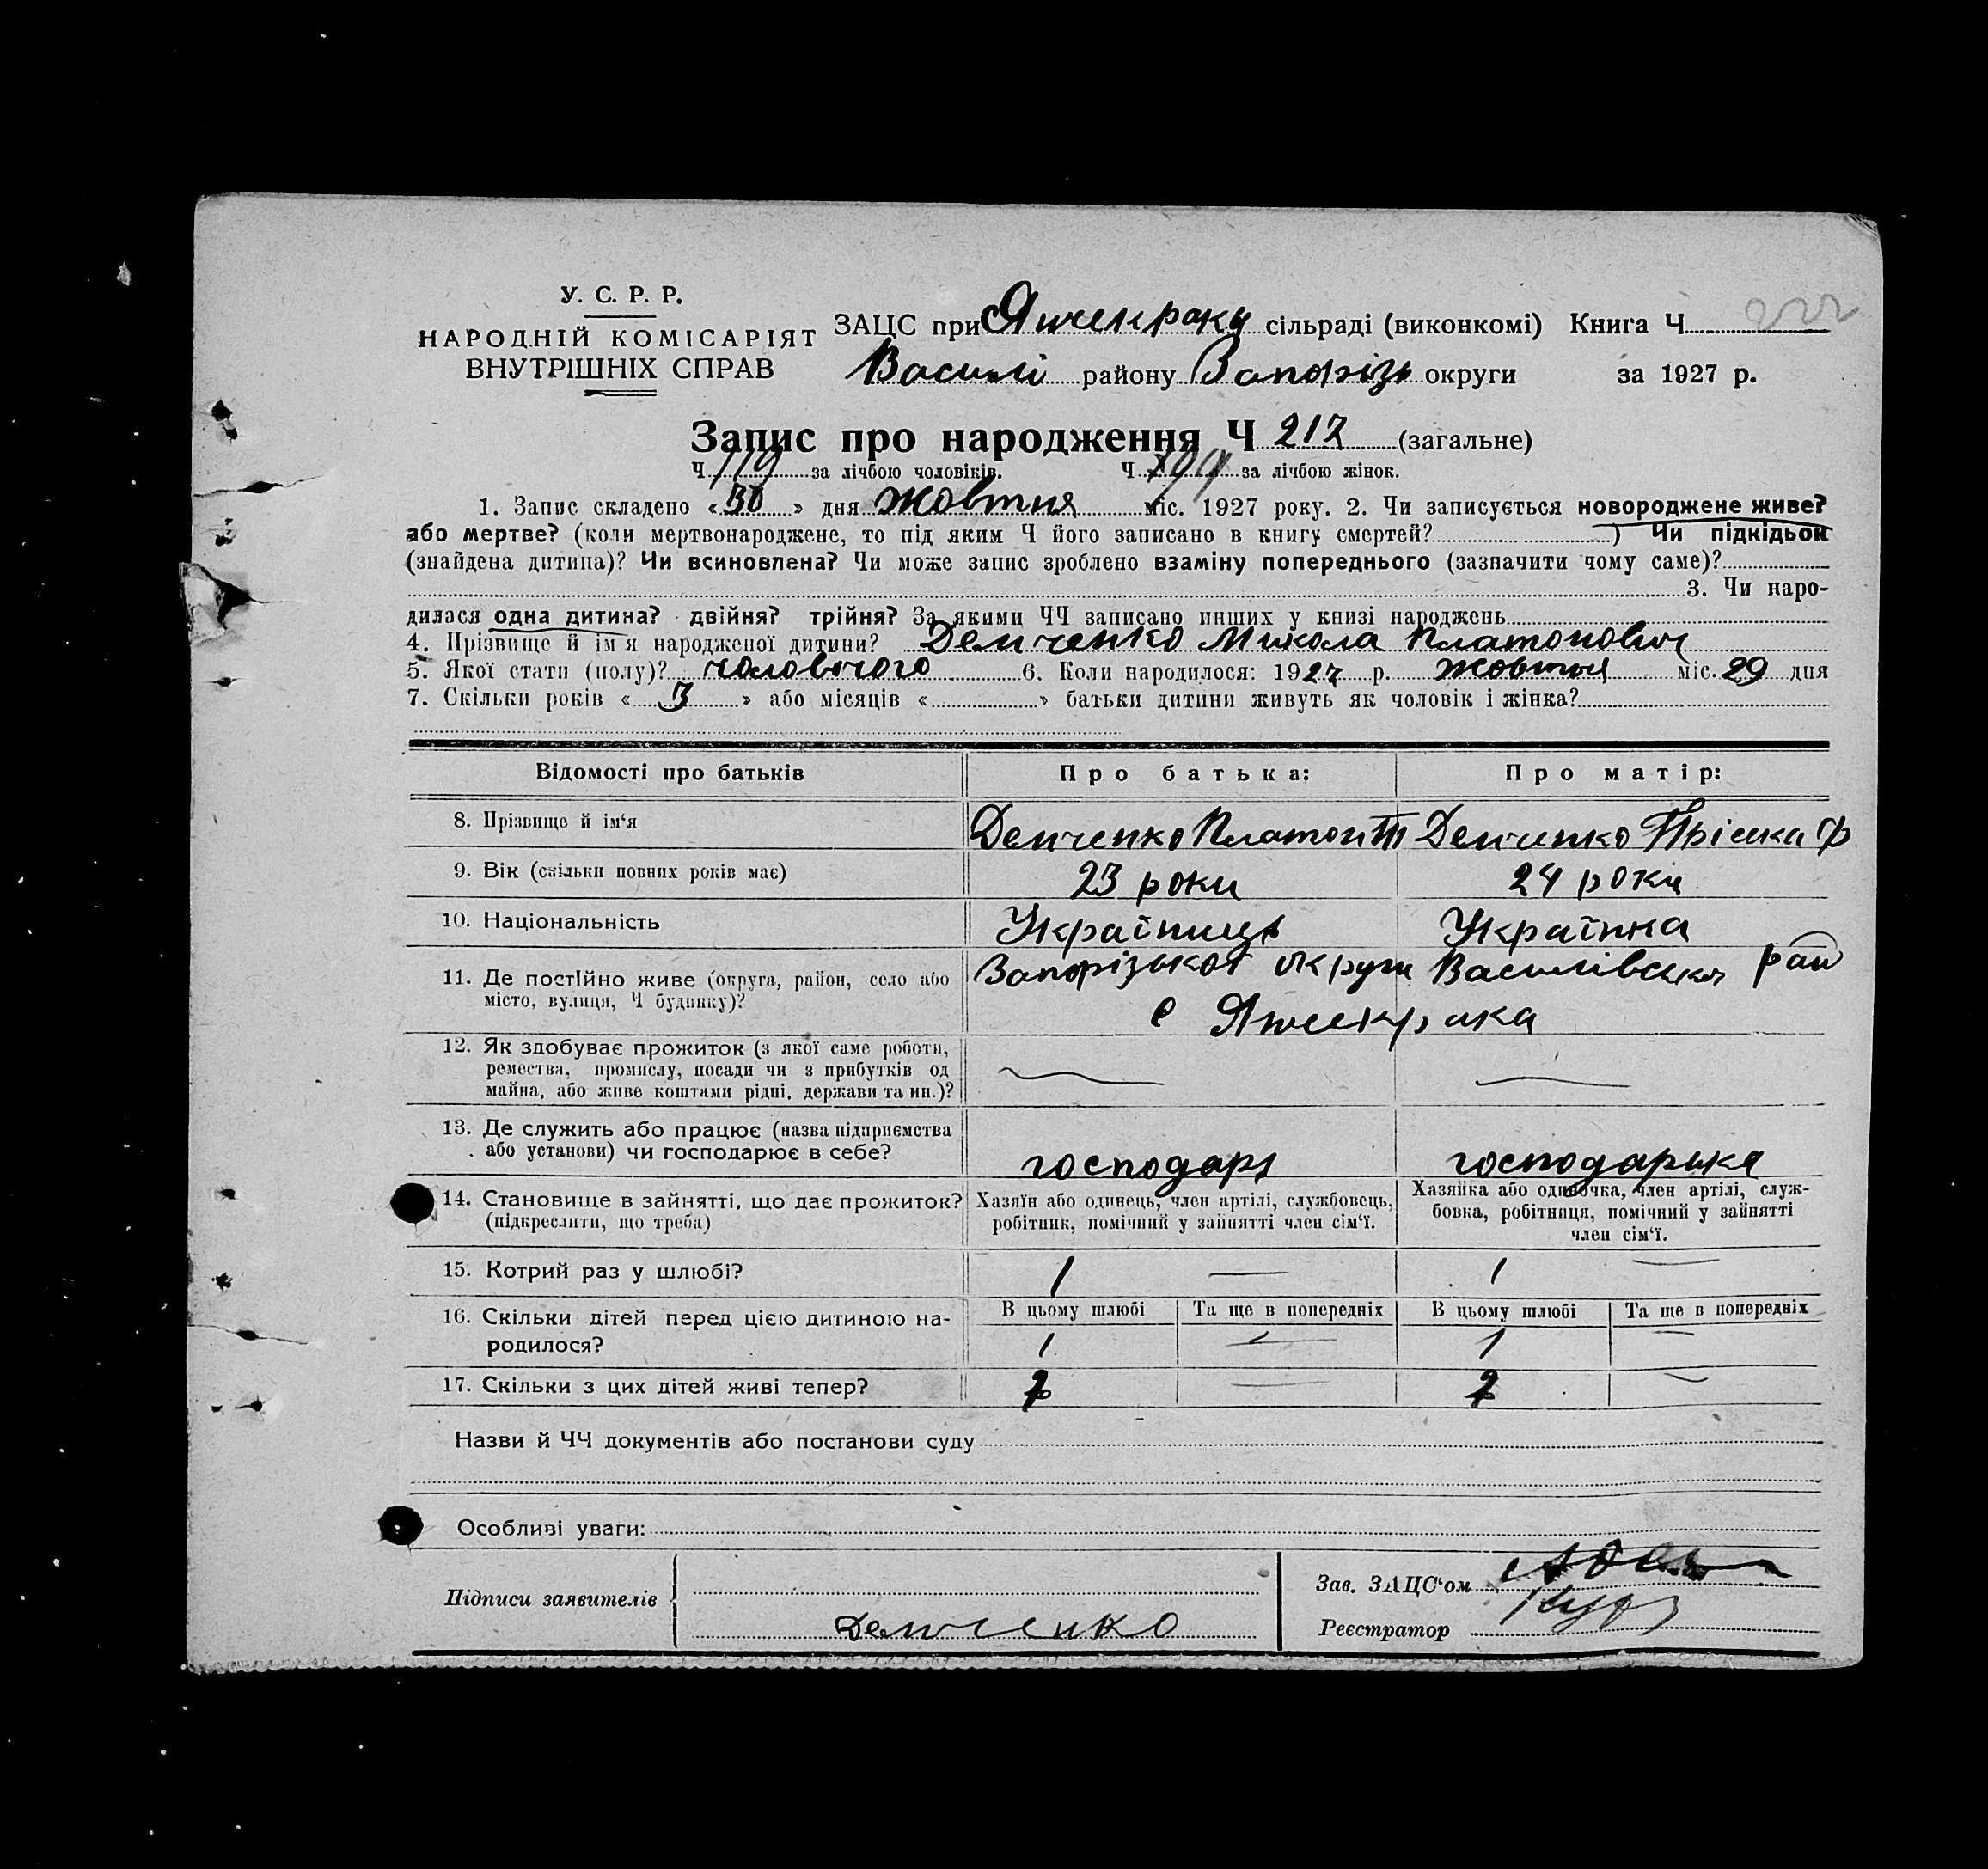 У. С. Р. Р.
НАРОДНІЙ КОМІСАРІЯТ
ВНУТРІШНІХ СПРАВ
ЗАЦС при Янчекраку сільраді (виконкомі) Книга Ч. 222
Василі району Запоріз округи за 1927 р.
Запис про народження Ч 217 (загальне)
Ч. 119 за лічбою чоловіків. Ч. за лічбою жінок.
1. Запис складено « 30 » дня жовтня міс. 1927 року. 2. Чи записується новороджене живе?
або мертве? (коли мертвонароджене, то під яким Ч його записано в книгу смертей? ) Чи підкідьок
(знайдена дитина)? Чи всиновлена? Чи може запис зроблено взаміну попереднього (зазначити чому саме)?
3. Чи наро-
дилася одна дитина? двійня? трійня? За якими ЧЧ записано инших у книзі народжень
4. Прізвище й ім'я народженої дитини? Демченко Микола Платонович
5. Якої стати (полу)? чоловічого 6. Коли народилося: 1927 р. жовтня міс. 29 дня
7. Скільки років « 3 » або місяців « » батьки дитини живуть як чоловік і жінка?
Відомості про батьків Про батька: Про матір:
8. Прізвище й ім'я Демченко Платон Демченко Пріська Ф
9. Вік (скільки повних років має) 23 роки 24 роки
10. Національність Українець Українка
11. Де постійно живе (округа, район, село або Запорізької округи Василівськ рай
місто, вулиця, Ч будинку)? с Янчекрака
12. Як здобуває прожиток (з якої саме роботи,
ремества, промислу, посади чи з прибутків од
майна, або живе коштами рідні, держави та ин.)?
13. Де служить або працює (назва підприємства
або установи) чи господарює в себе? господарь господарька
14. Становище в зайнятті, що дає прожиток? Хазяїн або одинець, член артілі, службовець, Хазяйка або одиночка, член артілі, служ-
(підкреслити, що треба) робітник, помічний у зайнятті член сім'ї. бовка, робітниця, помічний у зайнятті
член сім'ї.
15. Котрий раз у шлюбі? 1 — 1 —
16. Скільки дітей перед цією дитиною на- В цьому шлюбі Та ще в попередніх В цьому шлюбі Та ще в попередніх
родилося? 1 — 1 —
17. Скільки з цих дітей живі тепер? — —
Назви й ЧЧ документів або постанови суду
Особливі уваги:
Підписи заявителів
Демченко
Зав. ЗАЦС'ом
Реєстратор